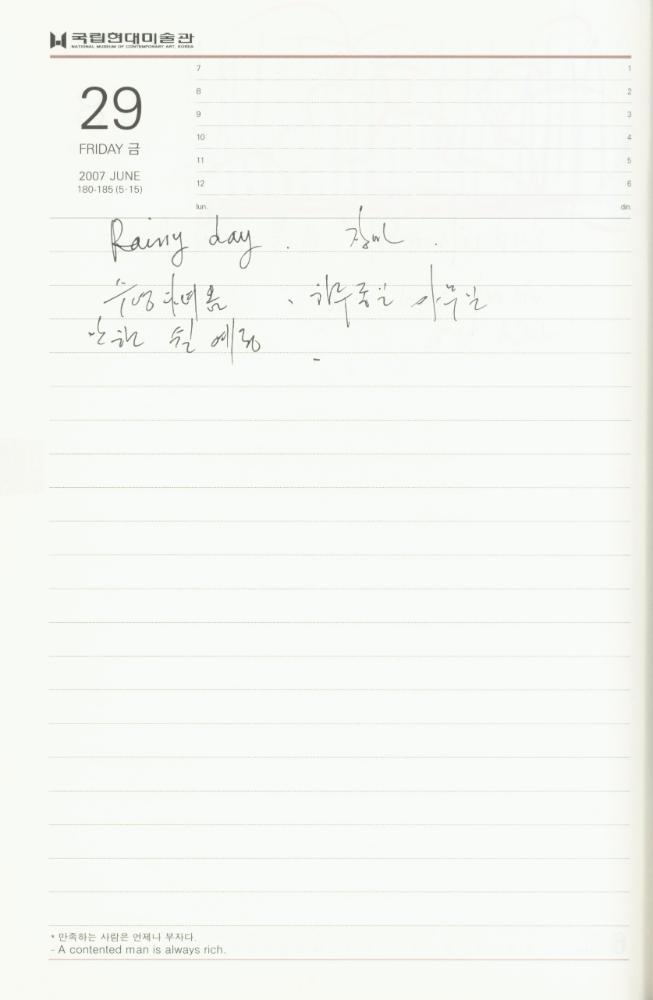 국립현대미술관
NATIONAL MUSEUM OF CONTEMPORARY ART, KOREA
29
FRIDAY 금
2007 JUNE
180-185 (5-15)
7 1
8 2
9 3
10 4
11 5
12 6
lun. din.
Rainy day . 장마 .
수영 다녀옴 . 하루종일 아무일
안하 쉴 예정
* 만족하는 사람은 언제나 부자다.
- A contented man is always rich.